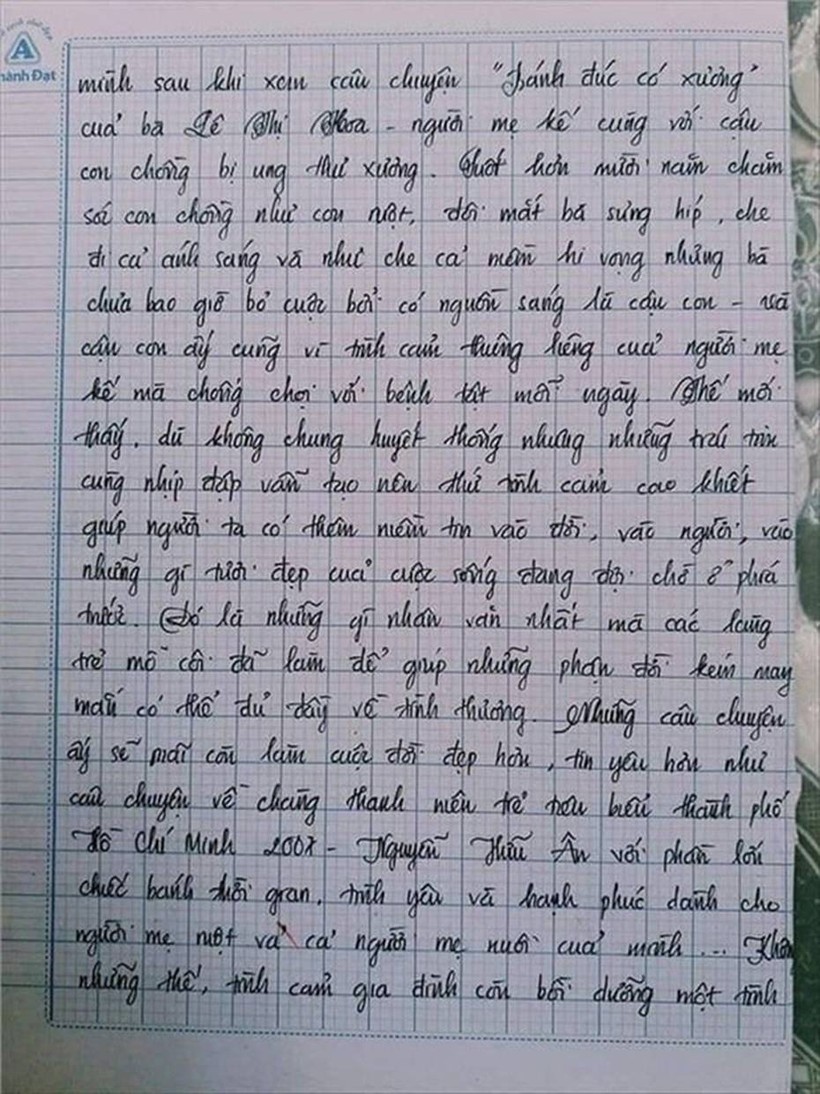 A
hành Đạt
mình sau khi xem câu chuyện "Bánh đúc có xương"
của bà Lê Thị Hoa - người mẹ kế cùng với cậu
con chồng bị ung thư xương. Suốt hơn mười năm chăm
sóc con chồng như con ruột, đôi mắt bà sưng híp, che
đi cả ánh sáng và như che cả niềm hi vọng nhưng bà
chưa bao giờ bỏ cuộc bởi có nguồn sáng là cậu con - và
cậu con ấy cũng vì tình cảm thiêng liêng của người mẹ
kế mà chống chọi với bệnh tật mỗi ngày. Thế mới
thấy, dù không chung huyết thống nhưng những trái tim
cùng nhịp đập vẫn tạo nên thứ tình cảm cao khiết
giúp người ta có thêm niềm tin vào đời, vào người, vào
những gì tươi đẹp của cuộc sống đang đợi chờ ở phía
trước. Đó là những gì nhân văn nhất mà các làng
trẻ mồ côi đã làm để giúp những phận đời kém may
mắn có thể đủ đầy về tình thương. Những câu chuyện
ấy sẽ mãi còn làm cuộc đời đẹp hơn, tin yêu hơn như
câu chuyện về chàng thanh niên trẻ tiêu biểu thành phố
Hồ Chí Minh 2007 - Nguyễn Hữu Ân với phần lớn
chiếc bánh thời gian, tình yêu và hạnh phúc dành cho
người mẹ ruột và cả người mẹ nuôi của mình... Không
những thế, tình cảm gia đình còn bồi dưỡng một tình